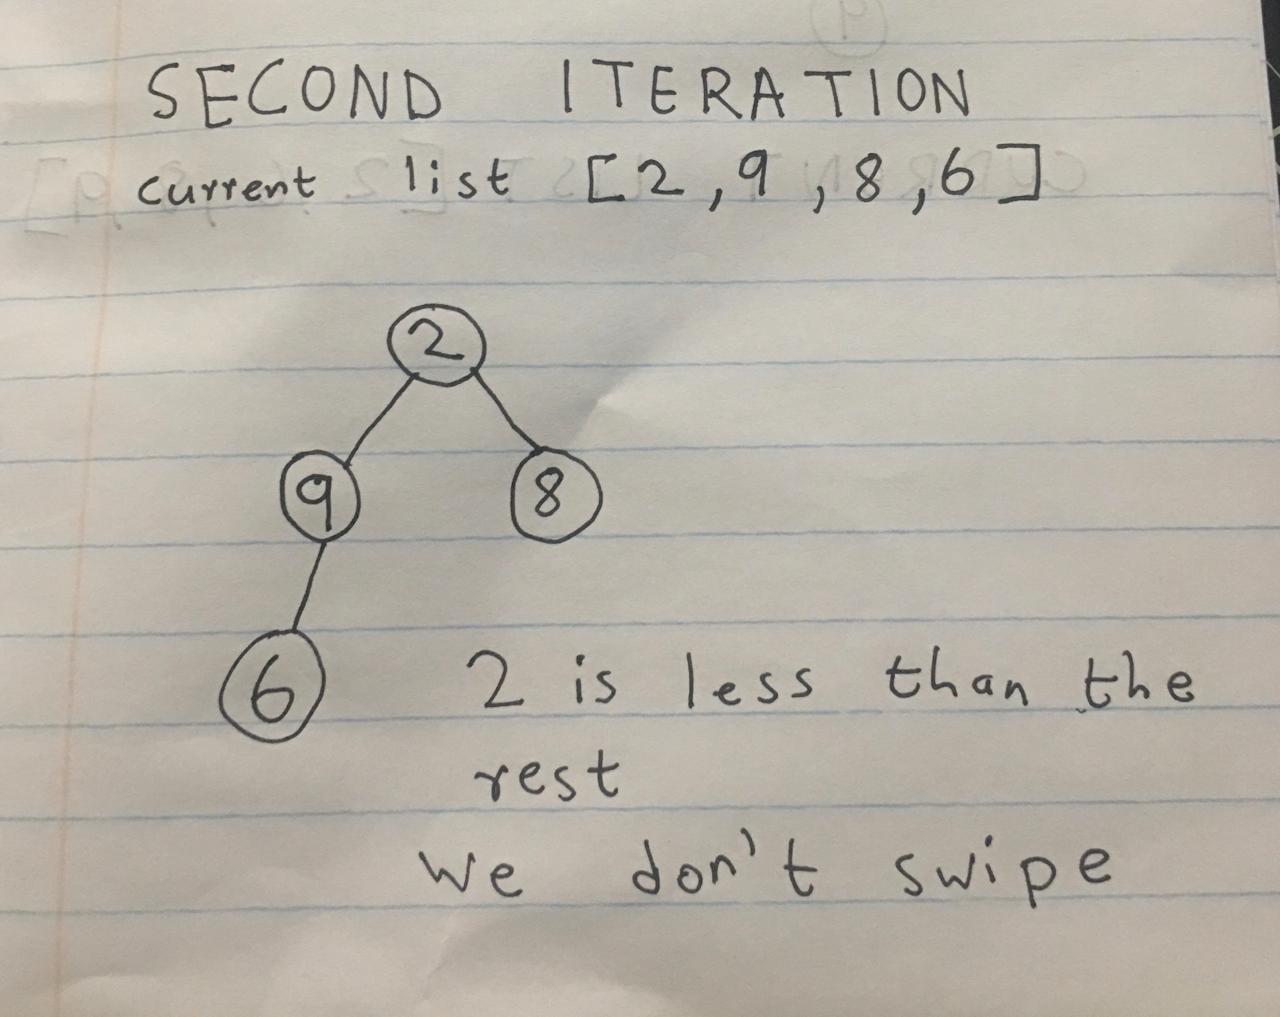 SECOND ITERATION
current list [2,9,8,6]
2
9 8
6
2 is less than the
rest
We don't swipe